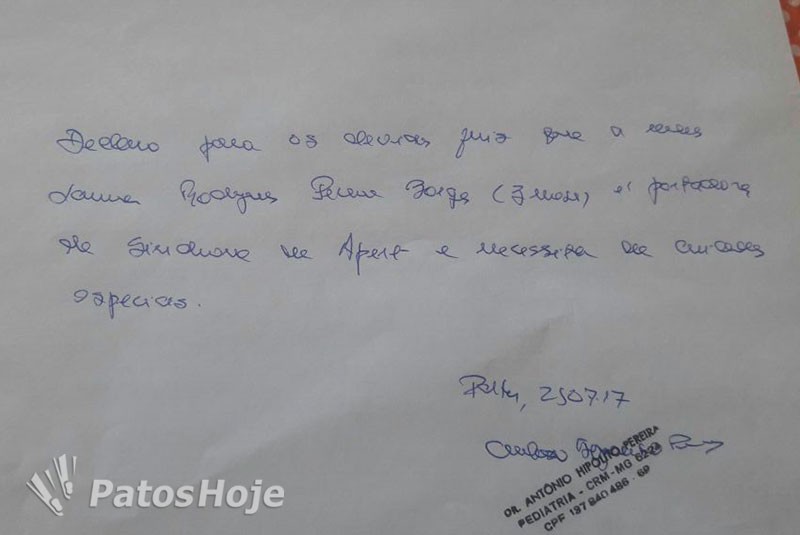 Declaro para os devidos fins que a menor
Rodrigues Borges (3 meses) é portadora
de Síndrome de Apert e necessita de cuidados
especiais.
Patos, 250717
DR. ANTÔNIO HIPÓLITO PEREIRA
PEDIATRIA - CRM-MG
CPF 197 840 486 - 69
PatosHoje